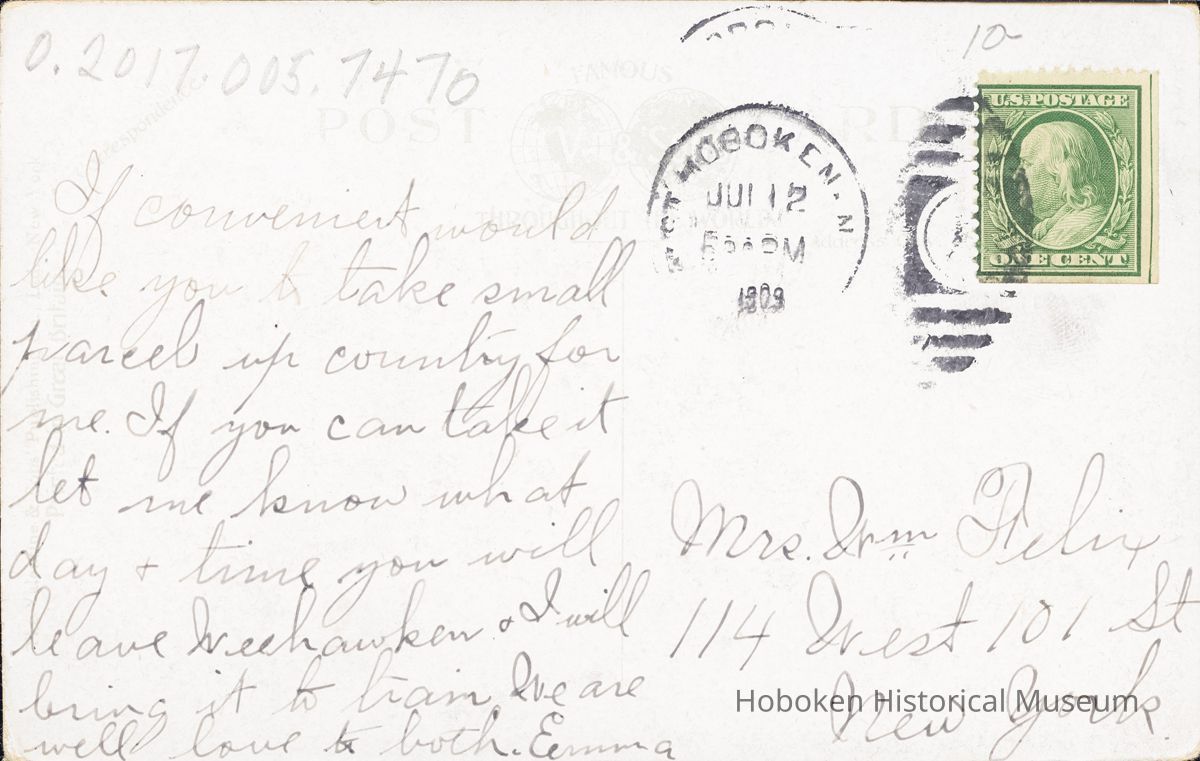 0.2017.005.7470
10
FAMOUS
POST CARD
V & S
THROUGHOUT THE WORLD
WEST HOBOKEN, N
JUL 12
PM
1909
U.S. POSTAGE
ONE CENT
If convenient would
like you to take small
parcel up country for
me. If you can take it
let me know what
day + time you will
leave Weehawken & I will
bring it to train We are
well love to both. Emma
Mrs. Wm Felix
114 West 101 St
New York.
Hoboken Historical Museum